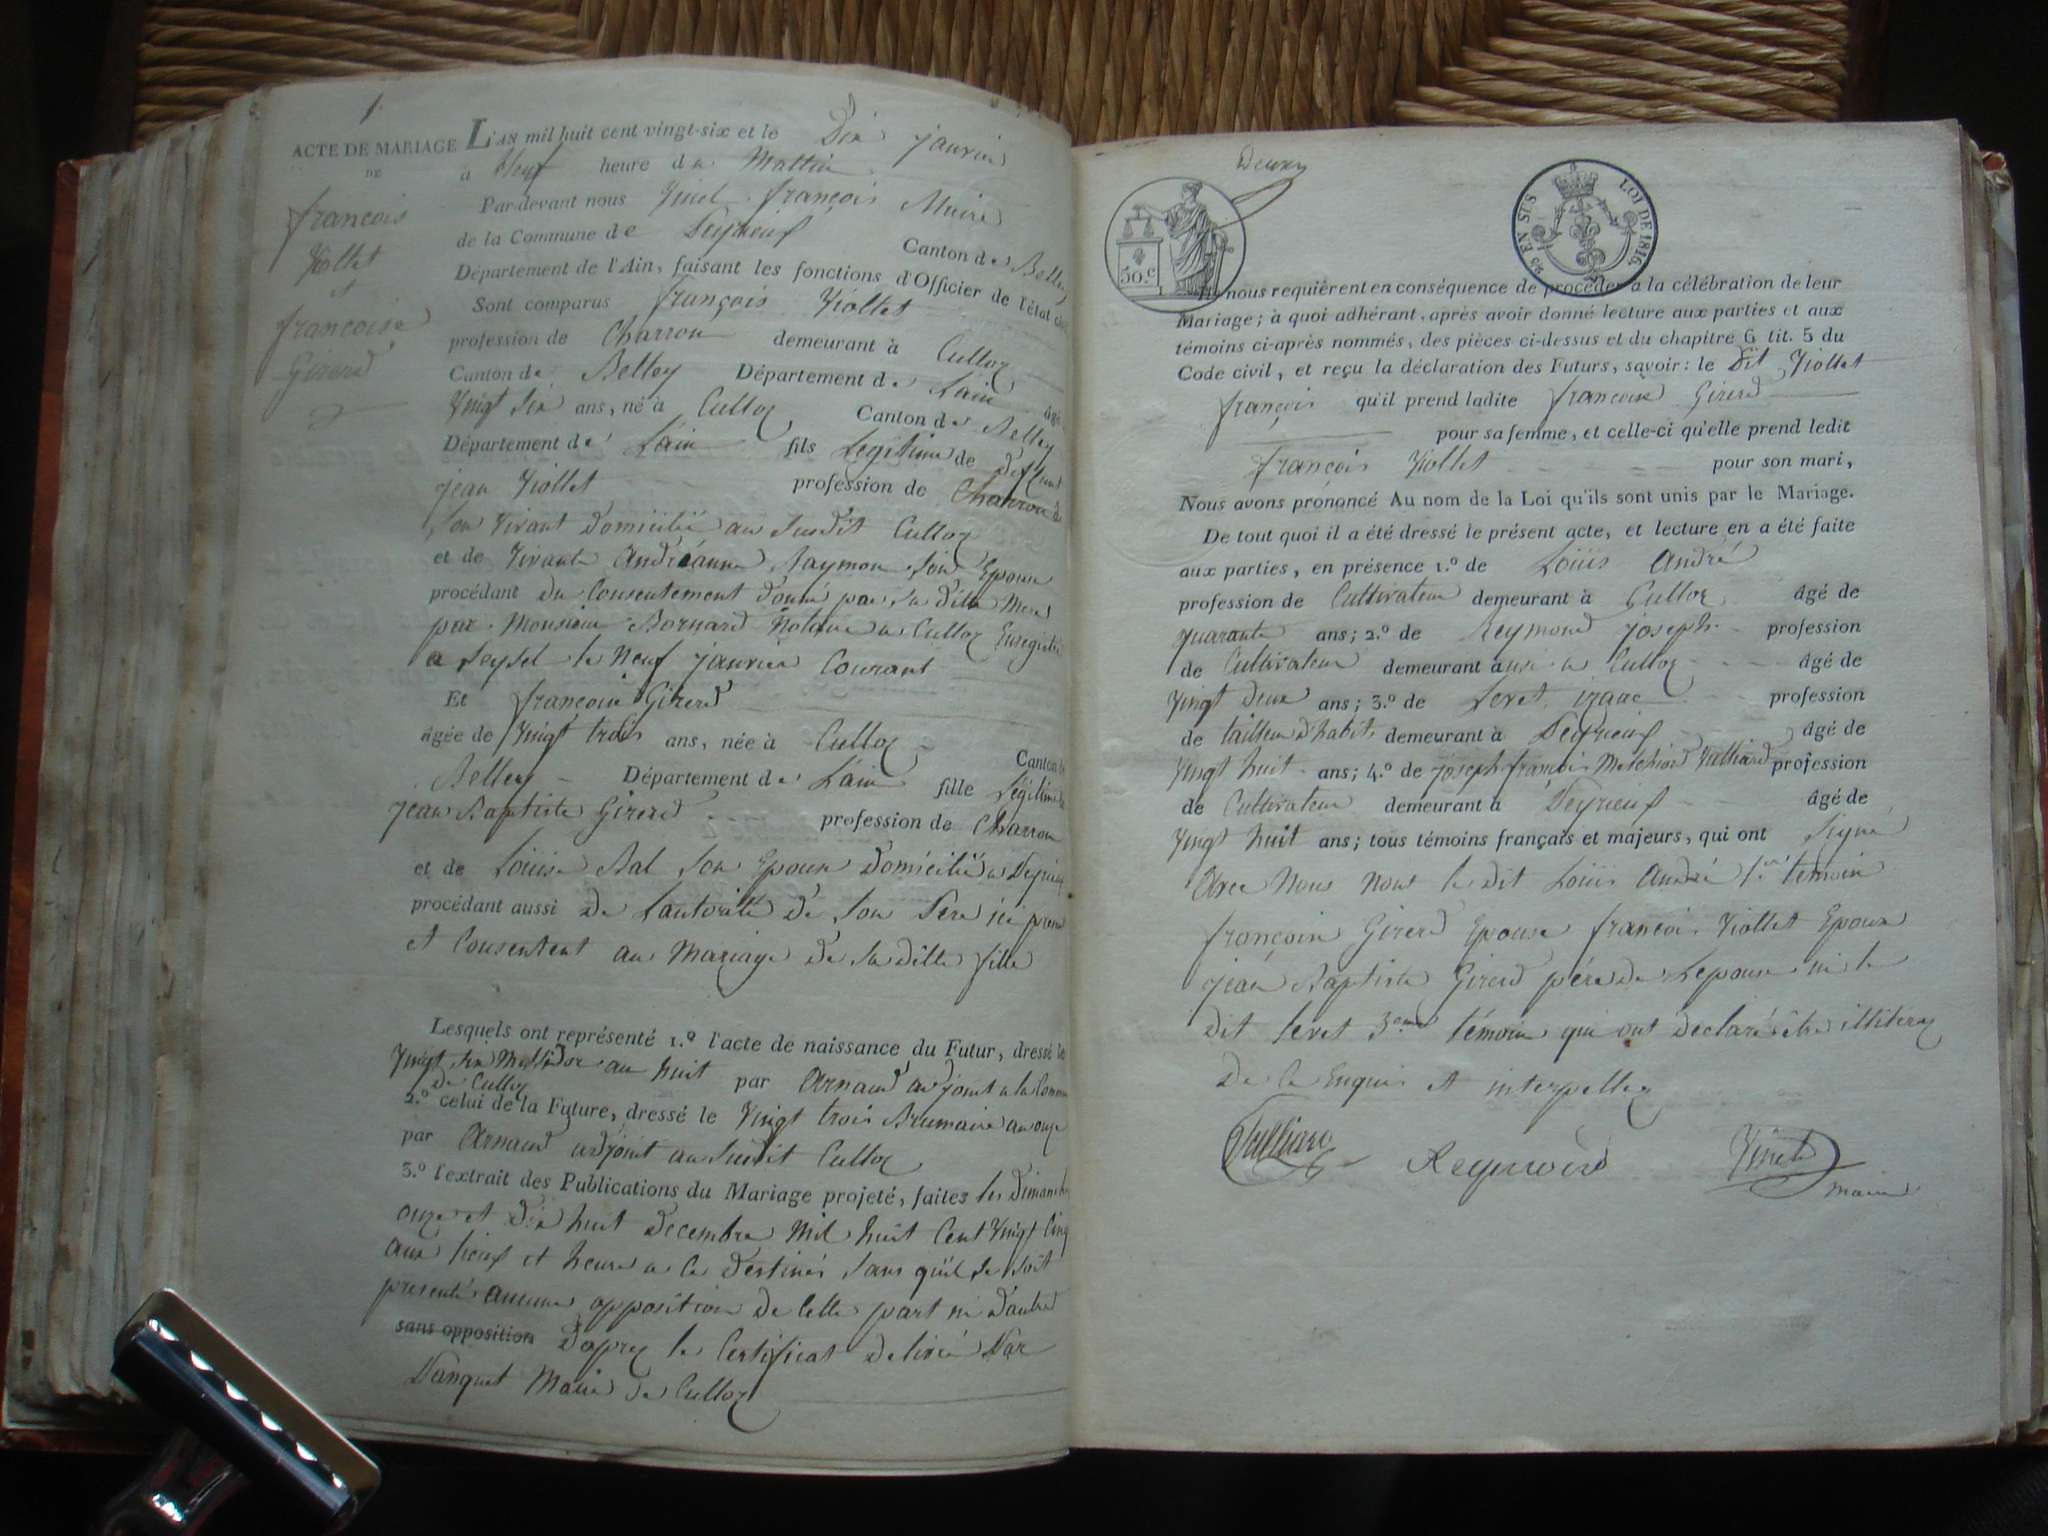 1.
ACTE DE MARIAGE
DE
françois
Viollet
et
francoise
Girerd
L'AN mil huit cent vingt-six et le Dix janvier
à Neuf heure du Mattin
Par-devant nous Vinet françois Maire
de la Commune de Peyrieuf Canton de Belley
Département de l'Ain, faisant les fonctions d'Officier de l'état civ
Sont comparus françois Viollet
profession de Charron demeurant à Culloz
Canton de Belley Département de Lain âgé
Vingt six ans, né à Culloz Canton de Belley
Département de Lain fils Légitime de Deffunt
jean Viollet profession de Charron de
son vivant Domicilié au susdit Culloz
et de vivante Andréanne Raymon son Epouse
procédant du Consentement donné par sa ditte Mere
par Monsieur Bornard Notaire a Culloz Enregistré
a Seyssel le Neuf janvier Courant
Et francoise Girerd
âgée de Vingt trois ans, née à Culloz Canton de
Belley Département de Lain fille Légitime de
jean Baptiste Girerd profession de Charron
et de Loüise Bal son Epouse Domicilié a Peyrieu
procédant aussi de Lautorité de son Pere ici présen
et Consentent au Mariage de sa ditte fille
Lesquels ont représenté 1.º l'acte de naissance du Futur, dressé le
Vingt six Messidor an huit par Arnaud adjoint a la Commune
de Culloz
2.º celui de la Future, dressé le Vingt trois Brumaire an onze
par Arnaud adjoint au susdit Culloz
3.º l'extrait des Publications du Mariage projeté, faites les dimanches
onze et dix huit Decembre Mil huit Cent Vingt Cinq
aux lieux et heure a ce destinés sans qu'il se soit
presenté aucune opposition de Cette part ni d'autre
sans opposition d'aprez le Certificat delivré Par
Danquet Maire de Culloz
Deuxer
50.C
25 EN SUS LOI DE 1816.
Ils nous requièrent en conséquence de procéder à la célébration de leur
Mariage; à quoi adhérant, après avoir donné lecture aux parties et aux
témoins ci-après nommés, des pièces ci-dessus et du chapitre 6 tit. 5 du
Code civil, et reçu la déclaration des Futurs, savoir: le Dit Viollet
françois qu'il prend ladite francoise Girerd
pour sa femme, et celle-ci qu'elle prend ledit
françois Viollet pour son mari,
Nous avons prononcé Au nom de la Loi qu'ils sont unis par le Mariage.
De tout quoi il a été dressé le présent acte, et lecture en a été faite
aux parties, en présence 1.º de Loüis André
profession de Cultivateur demeurant à Culloz âgé de
quarante ans; 2.º de Reymond joseph profession
de Cultivateur demeurant ausi a Culloz âgé de
Vingt deux ans; 3.º de Levet izaac profession
de tailleur d'habits demeurant à Peyrieuf âgé de
Vingt huit ans; 4.º de joseph francois Melchior Tulliard profession
de Cultivateur demeurant à Peyrieuf âgé de
Vingt huit ans; tous témoins français et majeurs, qui ont Signé
Avec Nous Nont le dit Loüis André 1.er témoin
françoise Girerd Epouse francois Viollet Epoux
jean Baptiste Girerd père de Lepouse ni le
dit levet 3eme témoin qui ont declaré être illiterez
de ce Enquis et interpellez
Tulliard Reymond Vinet
maire